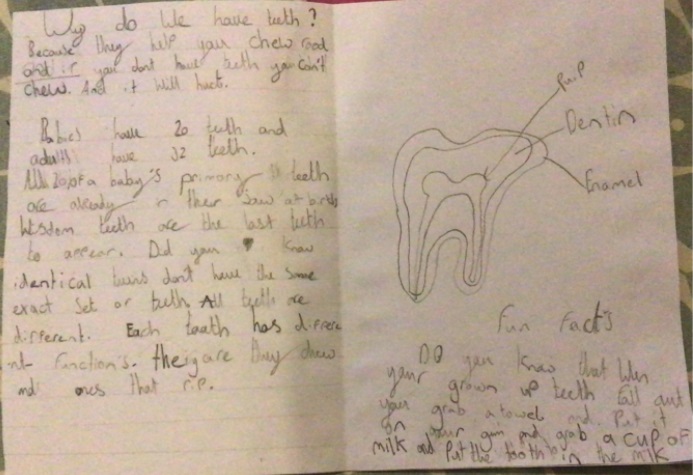 Why do we have teeth?
Because they help you chew food
and if you dont have teeth you can't
chew. And it will hurt.
Babies have 20 teeth and
adults have 32 teeth.
All 20 of a baby's primary teeth
are already in their Jaw at birth
Wisdom teeth are the last teeth
to appear. Did you know
identical twins don't have the same
exact set of teeth All teeth are
different. Each tooth has differe
nt function's. they are they chew
and ones that rip.
Pulp
Dentin
Enamel
Fun Facts
DO you know that when
your grown up teeth fall out
you grab a towel and Put it
on your gum and grab a CUP OF
milk and Put the tooth in the milk